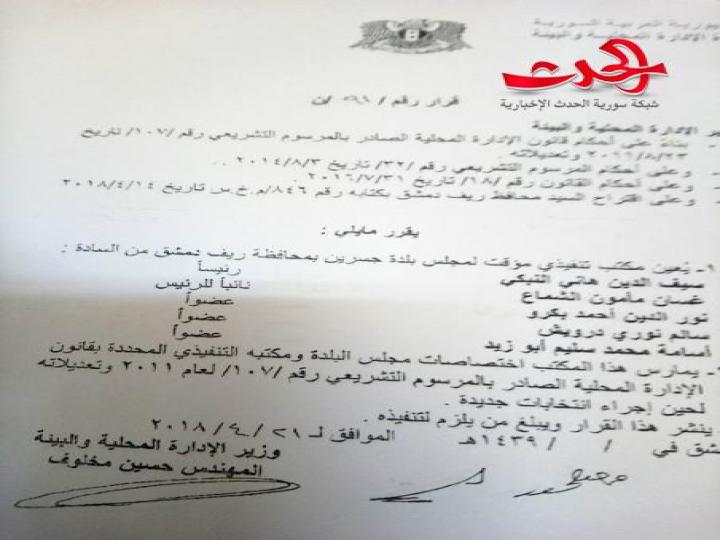 الجمهورية العربية السورية
وزارة الإدارة المحلية والبيئة
الحدث
شبكة سورية الحدث الإخبارية
قرار رقم / ٥٩٨ /ن
وزير الإدارة المحلية والبيئة
- بناءً على أحكام قانون الإدارة المحلية الصادر بالمرسوم التشريعي رقم /١٠٧/ تاريخ
٢٠١١/٨/٢٣ وتعديلاته .
- وعلى أحكام المرسوم التشريعي رقم /٣٢/ تاريخ ٢٠١٤/٨/٣ .
- وعلى أحكام القانون رقم /١٨/ تاريخ ٢٠١٦/٧/٣١ .
- وعلى اقتراح السيد محافظ ريف دمشق بكتابه رقم ٨٤٦/م.خ.س تاريخ ٢٠١٨/٤/١٤
يقرر مايلي :
١- يُعين مكتب تنفيذي مؤقت لمجلس بلدة جسرين بمحافظة ريف دمشق من السادة :
سيف الدين هاني النبكي رئيساً
غسان مأمون الشماع نائباً للرئيس
نور الدين أحمد بكرو عضواً
سالم نوري درويش عضواً
أسامة محمد سليم أبو زيد عضواً
- يمارس هذا المكتب اختصاصات مجلس البلدة ومكتبه التنفيذي المحددة بقانون
الإدارة المحلية الصادر بالمرسوم التشريعي رقم /١٠٧/ لعام ٢٠١١ وتعديلاته
لحين إجراء انتخابات جديدة .
ينشر هذا القرار ويبلغ من يلزم لتنفيذه .
دمشق في / / ١٤٣٩هـ الموافق لـ ٢٩ / ٤ / ٢٠١٨
وزير الإدارة المحلية والبيئة
المهندس حسين مخلوف